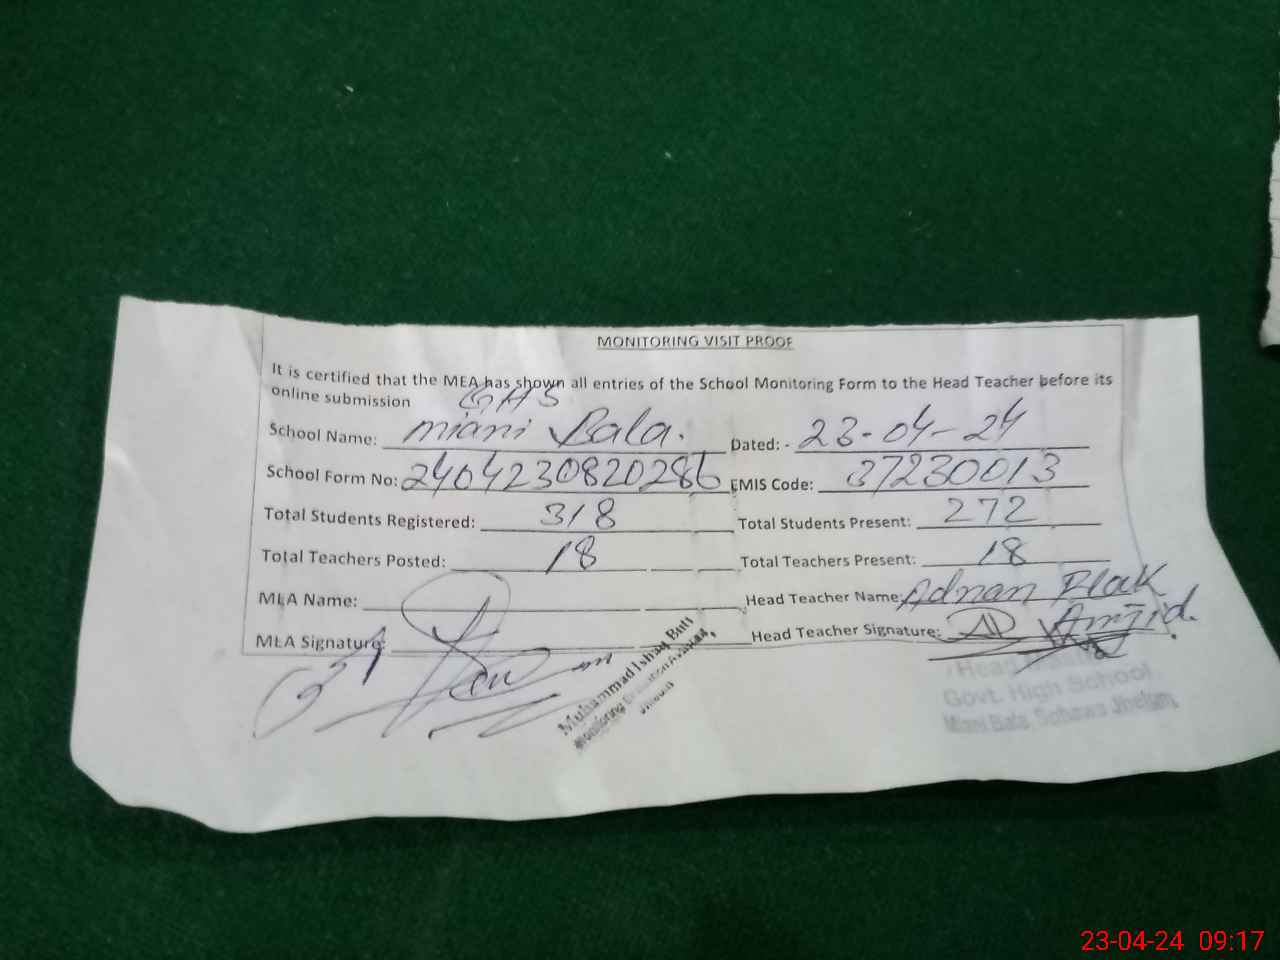 MONITORING VISIT PROOF
It is certified that the MEA has shown all entries of the School Monitoring Form to the Head Teacher before its
online submission
School Name: GHS miani Bala. Dated: - 23-04-24
School Form No: 2404230820286 EMIS Code: 37230013
Total Students Registered: 318 Total Students Present: 272
Total Teachers Posted: 18 Total Teachers Present: 18
MEA Name: Head Teacher Name: Adnan
MEA Signature: Head Teacher Signature: Amjid.
Muhammad Ishaq Butt
Monitoring
Jhelum
Head
Govt. High School
Miani Bala Sohawa Jhelum,
23-04-24 09:17